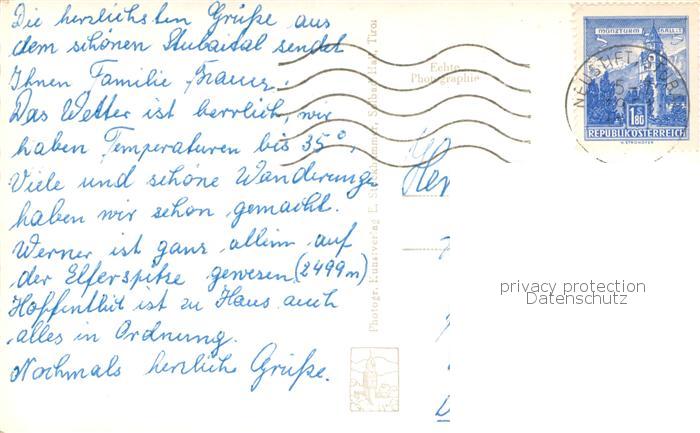 Die herzlichsten Grüße aus
dem schönen Stubaital sendet
Ihnen Familie
Das Wetter ist herrlich, wir
haben Temperaturen bis 35°,
Viele und schöne Wanderungen
haben wir schon gemacht.
Werner ist ganz allein auf
der Elferspitze gewesen (2499m)
Hoffentlich ist zu Haus auch
alles in Ordnung.
Nochmals herzliche Grüße.
Photogr. Kunstverlag L. Stockhammer, Hall, Tirol
Echte
Photographie
MÜNZTURM HALL
1.80
REPUBLIK ÖSTERREICH
NEUSTIFT
privacy protection
Datenschutz